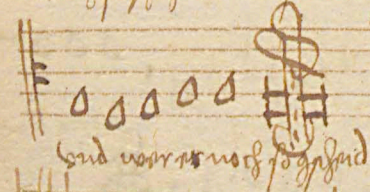 vnd wer er noch so gscheid